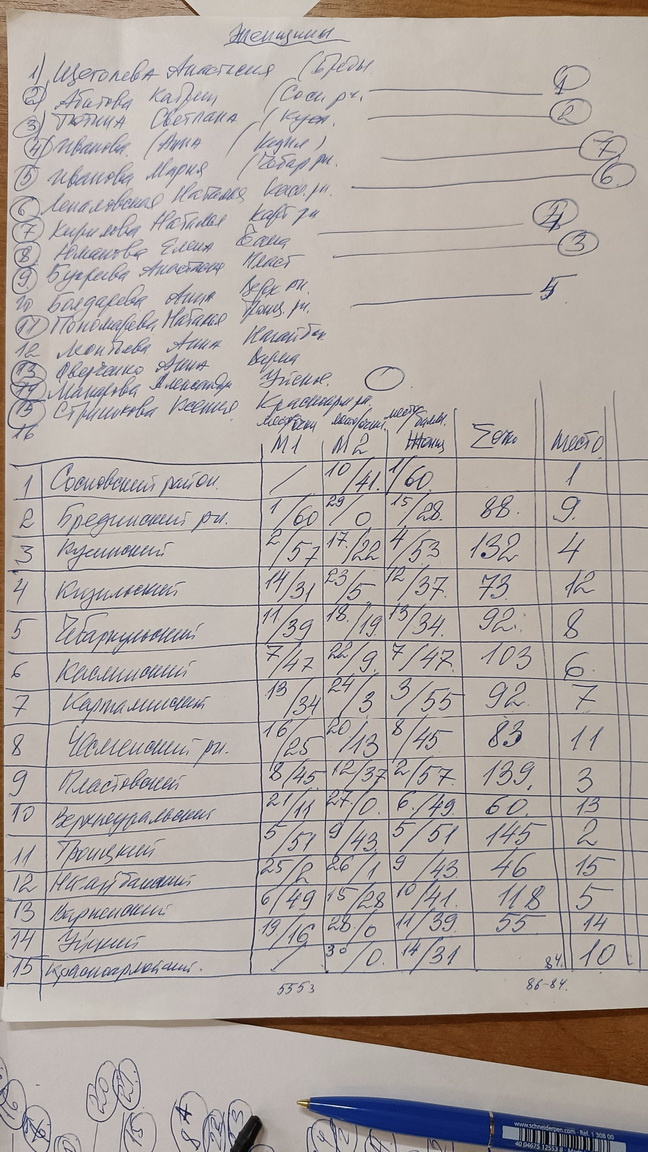 Женщины
1) Щеголева Анастасия (Бреды
2) Абитова (Сосн рн. 1
3) Тюнина Светлана (Куса. 2
4) Иванова (Анна (Кизил) 7
5) Иванова Мария (Чебар рн. 6
6) Наталья Касл. рн.
7) Кирилова Наталья Карт рн
8) Юманова Елена 3
9) Анастасия Пласт
10 Бондарева Анна Верх рн. 5
11 Пономарева Наталья Троиц. рн.
12 Леонтьева Анна Нагайбак
13 Анна Варна
14 Макарова Александр
15 Ксения Красноарм рн.
16
место/очки место/очки место/балл.
М1 М2 Σочко место
1 Сосновский район. / 10/41. 1/60. 1
2 Брединский рн. 1/60 29/0 15/28. 88. 9.
3 Кусинский 2/57 17/22 4/53 132 4
4 Кизильский 14/31 23/5 12/37. 73. 12
5 Чебаркульский 11/39 18/19 13/34. 92. 8
6 Каслинский 7/47 22/9. 7/47. 103 6.
7 Карталинский 13/34 24/3 3/55 92. 7
8 Чесменский рн. 16/25 20/13 8/45 83 11
9 Пластовский 8/45 12/37 2/57. 139. 3
10 Верхнеуральский 21/11 27/0. 6./49. 60. 13
11 Троицкий 5/51 9/43 5/51 145 2
12 Нагайбакский 25/2 26/1 9/43 46 15
13 Варненский 6/49 15/28 10/41. 118 5
14 Уйский 19/16 28/0 11/39 55 14
15 Красноармейский. / 30/0. 14/31 84. 10
5553 86-84.
20 21
15
www.schneiderpen.com